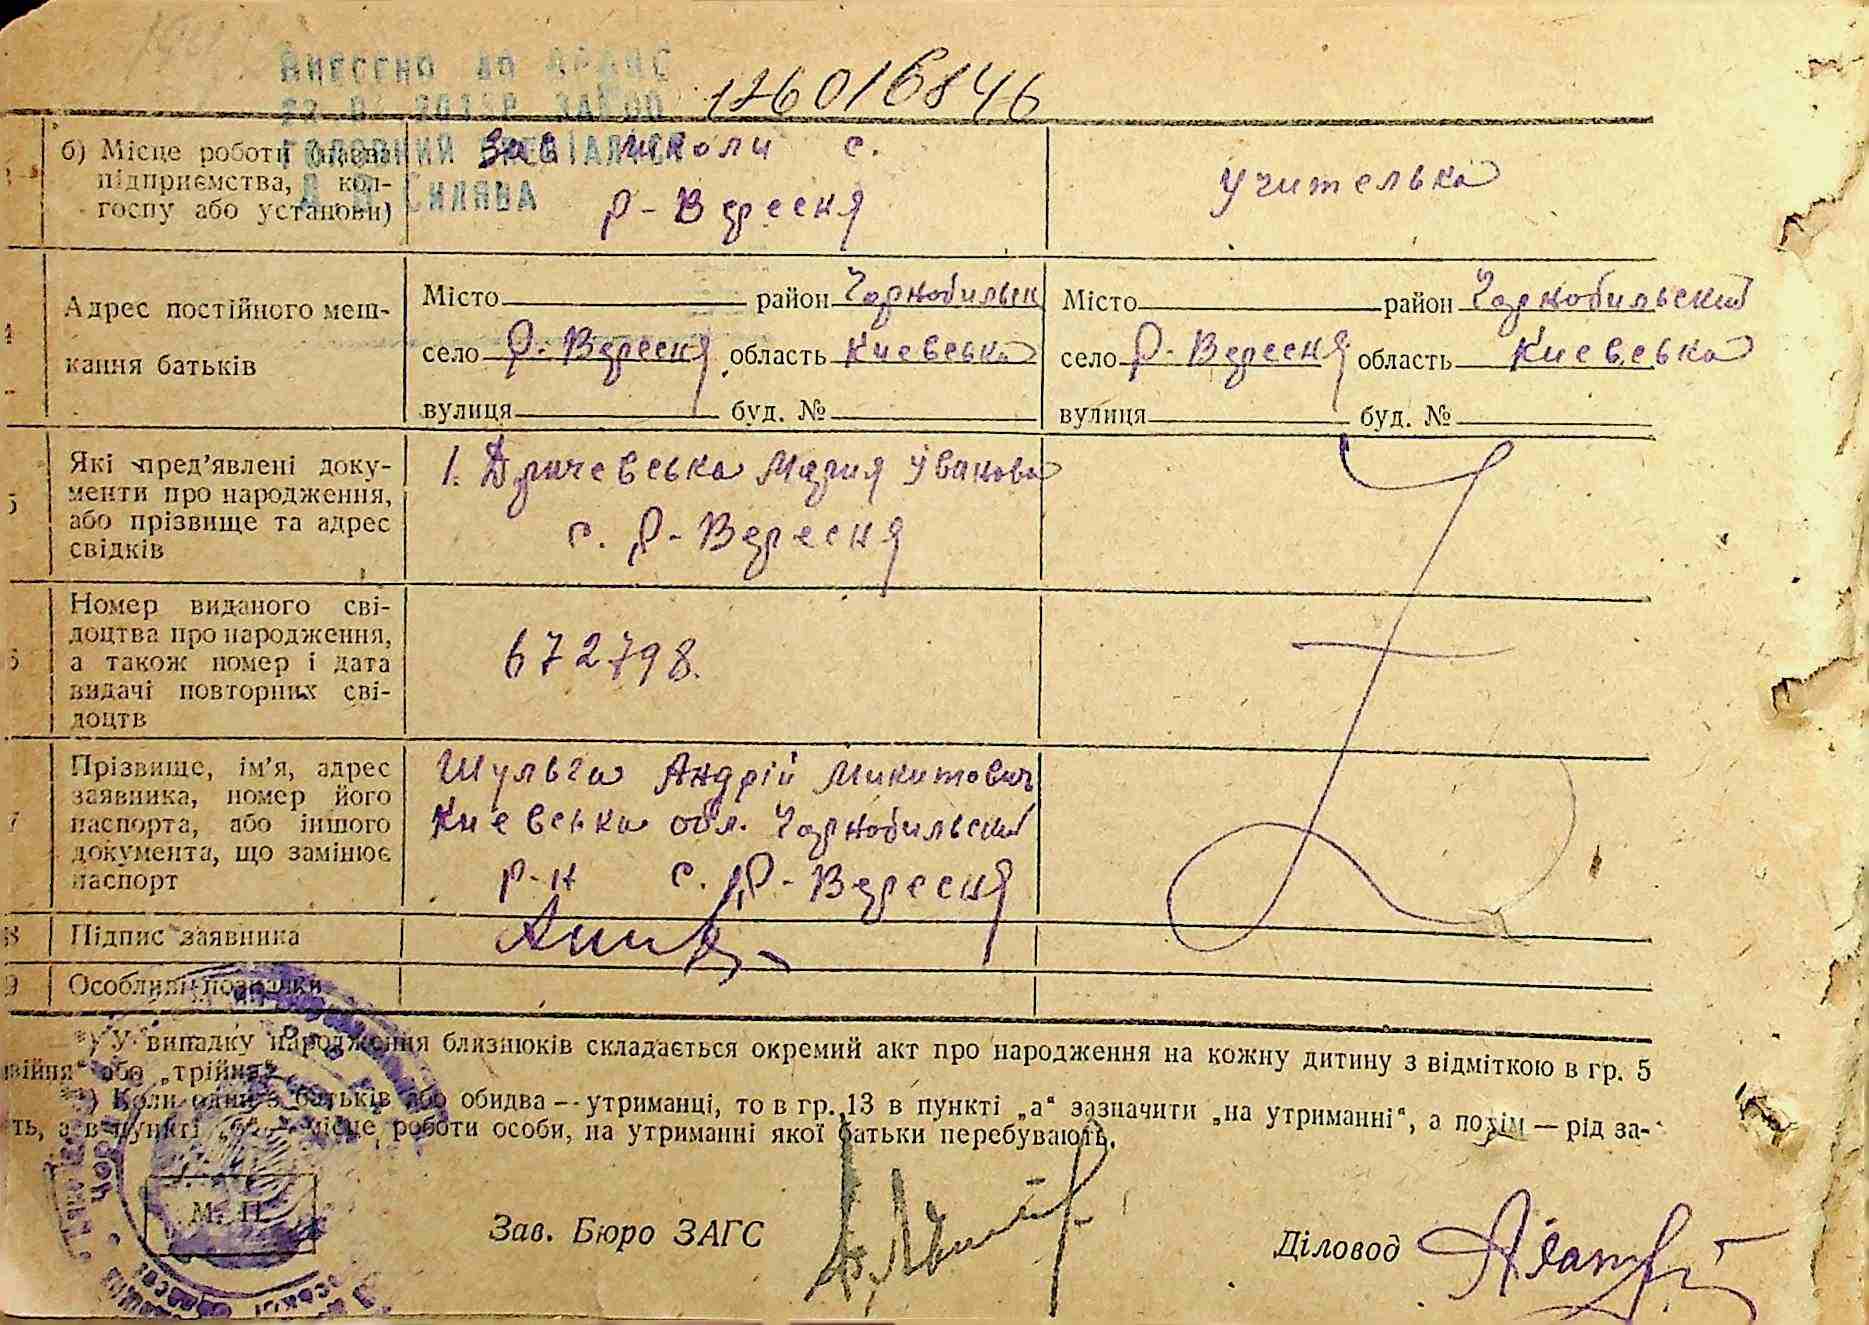 Внесено до ДРАЦС
Головний спеціаліст
Силява
126016846
б) Місце роботи (назва підприємства, кол-
госпу або установи)
Зав школи с.
Р-Вересня
учителька
Адрес постійного меш-
кання батьків
Місто район Чорнобильськ
село Р-Вересня область Киевська
вулиця буд. №
Місто район Чорнобильский
село Р-Вересня область Киевська
вулиця буд. №
5
Які пред'явлені доку-
менти про народження,
або прізвище та адрес
свідків
1. Мария Иванова
с. Р-Вересня
Номер виданого сві-
доцтва про народження,
а також номер і дата
видачі повторних сві-
доцтв
672798.
7
Прізвище, ім'я, адрес
заявника, номер його
паспорта, або іншого
документа, що замінює
паспорт
Шульга Андрій Микитович
Киевська обл. Чорнобильский
р-н с. Р-Вересня
8
Підпис заявника
9
Особливі позначки
*) У випадку народження близнюків складається окремий акт про народження на кожну дитину з відміткою в гр. 5
"двійня" або „трійня".
Коли один з батьків або обидва — утриманці, то в гр. 13 в пункті „а" зазначити „на утриманні", а потім — рід за-
ть, а в пункті місце роботи особи, на утриманні якої батьки перебувають.
М. П.
Зав. Бюро ЗАГС
Діловод